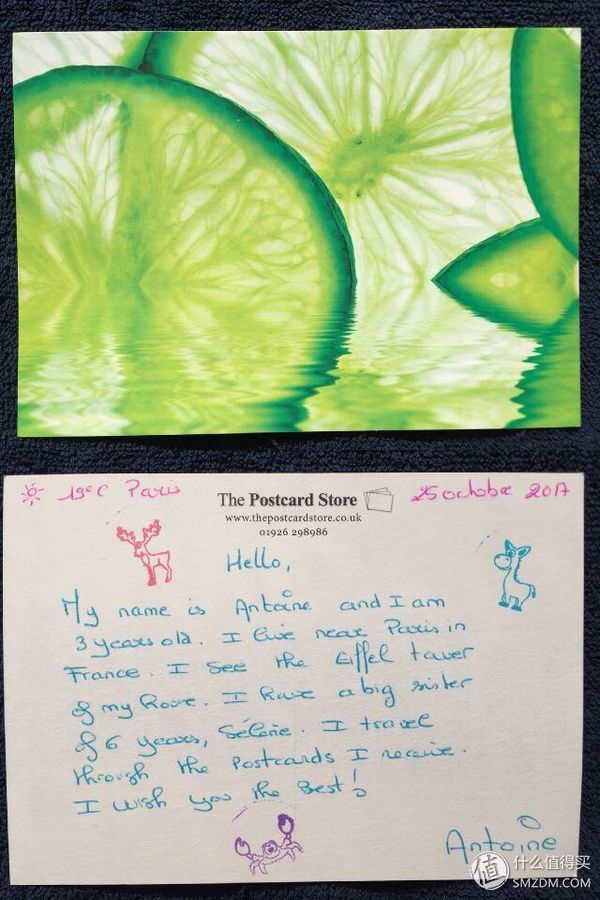 19°C Paris
The Postcard Store
25 octobre 2017
www.thepostcardstore.co.uk
01926 298986
Hello,
My name is Antoine and I am
3 years old. I live near Paris in
France. I see the Eiffel tawer
of my house. I have a big sister
of 6 years, Sélène. I travel
through the Postcards I receive.
I wish you the Best!
Antoine
值 什么值得买
SMZDM.COM